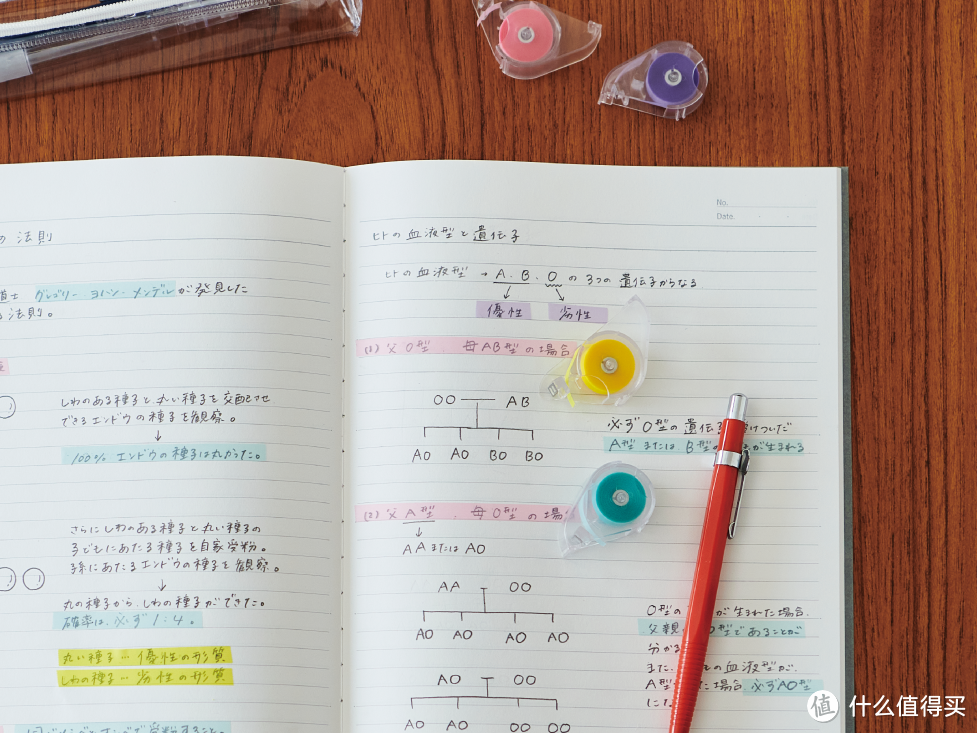 法則
グレゴリー・ヨハン・メンデルが発見した
法則。
しわのある種子と丸い種子を交配させ
できるエンドウの種子を観察。
↓
100% エンドウの種子は丸かった。
さらにしわのある種子と丸い種子の
子どもにあたる種子を自家受粉。
孫にあたるエンドウの種子を観察。
↓
丸の種子から、しわの種子ができた。
確率は、必ず1:4。
丸い種子…優性の形質
しわの種子…劣性の形質
No.
Date.
ヒトの血液型と遺伝子
ヒトの血液型 → A.B.Oの3つの遺伝子からなる
優性 劣性
(1) 父O型 母AB型の場合
OO AB
AO AO BO BO
必ずO型の遺伝子 けついだ
A型またはB型の が生まれる
(2) 父A型、母O型の場合
↓
AAまたはAO
AA OO
AO AO AO AO
O型の が生まれた場合、
父親 O型であることが
分かる
また、 の血液型が、
A型 た場合 必ずAO型
にな
AO OO
AO AO OO OO
值 什么值得买